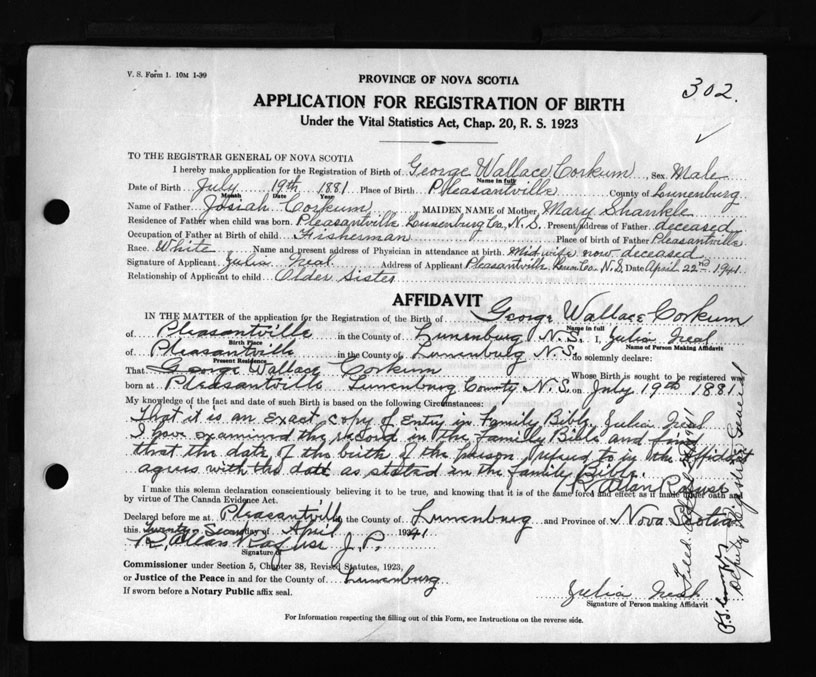 V. S. Form 1. 10M 1-39
302.
PROVINCE OF NOVA SCOTIA
APPLICATION FOR REGISTRATION OF BIRTH
Under the Vital Statistics Act, Chap. 20, R. S. 1923
TO THE REGISTRAR GENERAL OF NOVA SCOTIA
I hereby make application for the Registration of Birth of George Wallace Corkum, Sex Male
Name in full
Date of Birth July 19th 1881 Place of Birth Pleasantville County of Lunenburg
Month Date Year
Name of Father Josiah Corkum MAIDEN NAME of Mother Mary Shankle
Residence of Father when child was born. Pleasantville Lunenburg Co., N.S. Present Address of Father deceased
Occupation of Father at Birth of child Fisherman Place of birth of Father Pleasantville
Race. White Name and present address of Physician in attendance at birth. Midwife now deceased
Signature of Applicant Julia Neal Address of Applicant Pleasantville Lun. Co. N.S. Date April 22nd 1941
Relationship of Applicant to child Older Sister
AFFIDAVIT
IN THE MATTER of the application for the Registration of the Birth of George Wallace Corkum
Name in full
of Pleasantville in the County of Lunenburg N.S. I, Julia Neal
Birth Place Name of Person Making Affidavit
of Pleasantville in the County of Lunenburg N.S. do solemnly declare:
Present Residence
That George Wallace Corkum Whose Birth is sought to be registered was
born at Pleasantville Lunenburg County N.S. on July 19th 1881.
My knowledge of the fact and date of such Birth is based on the following Circumstances:
That it is an exact copy of Entry in Family Bible. Julia Neal
I have examined the record in the Family Bible and find
that the date of the birth of the person refered to in the Affidavit
agrees with the date as stated in the family Bible.
R. Allan Rafuse
I make this solemn declaration conscientiously believing it to be true, and knowing that it is of the same force and effect as if made under oath and
by virtue of The Canada Evidence Act.
Declared before me at Pleasantville, the County of Lunenburg and Province of Nova Scotia
this Twenty-Second day of April 1941
R. Allan Rafuse J.P.
Signature
Commissioner under Section 5, Chapter 38, Revised Statutes, 1923,
or Justice of the Peace in and for the County of Lunenburg
If sworn before a Notary Public affix seal.
Julia Neal
Signature of Person making Affidavit
For Information respecting the filling out of this Form, see Instructions on the reverse side.
Filed April 1941
Deputy Registrar General